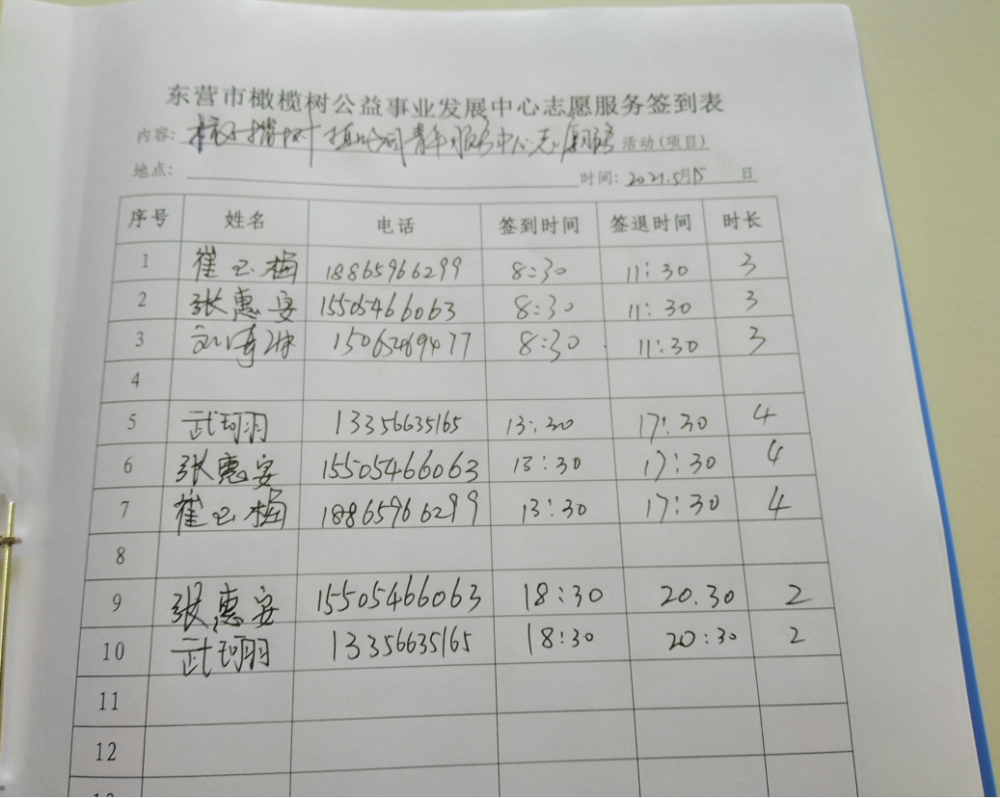 东营市橄榄树公益事业发展中心志愿服务签到表
内容: 青年服务中心志愿服务 活动(项目)
地点: 时间: 2021.5月15 日
序号 姓名 电话 签到时间 签退时间 时长
1 崔玉梅 18865966299 8:30 11:30 3
2 张惠安 15505466063 8:30 11:30 3
3 刘涛琳 15065469477 8:30 11:30 3
4
5 武珂羽 13356635165 13:30 17:30 4
6 张惠安 15505466063 13:30 17:30 4
7 崔玉梅 18865966299 13:30 17:30 4
8
9 张惠安 15505466063 18:30 20.30 2
10 武珂羽 13356635165 18:30 20:30 2
11
12